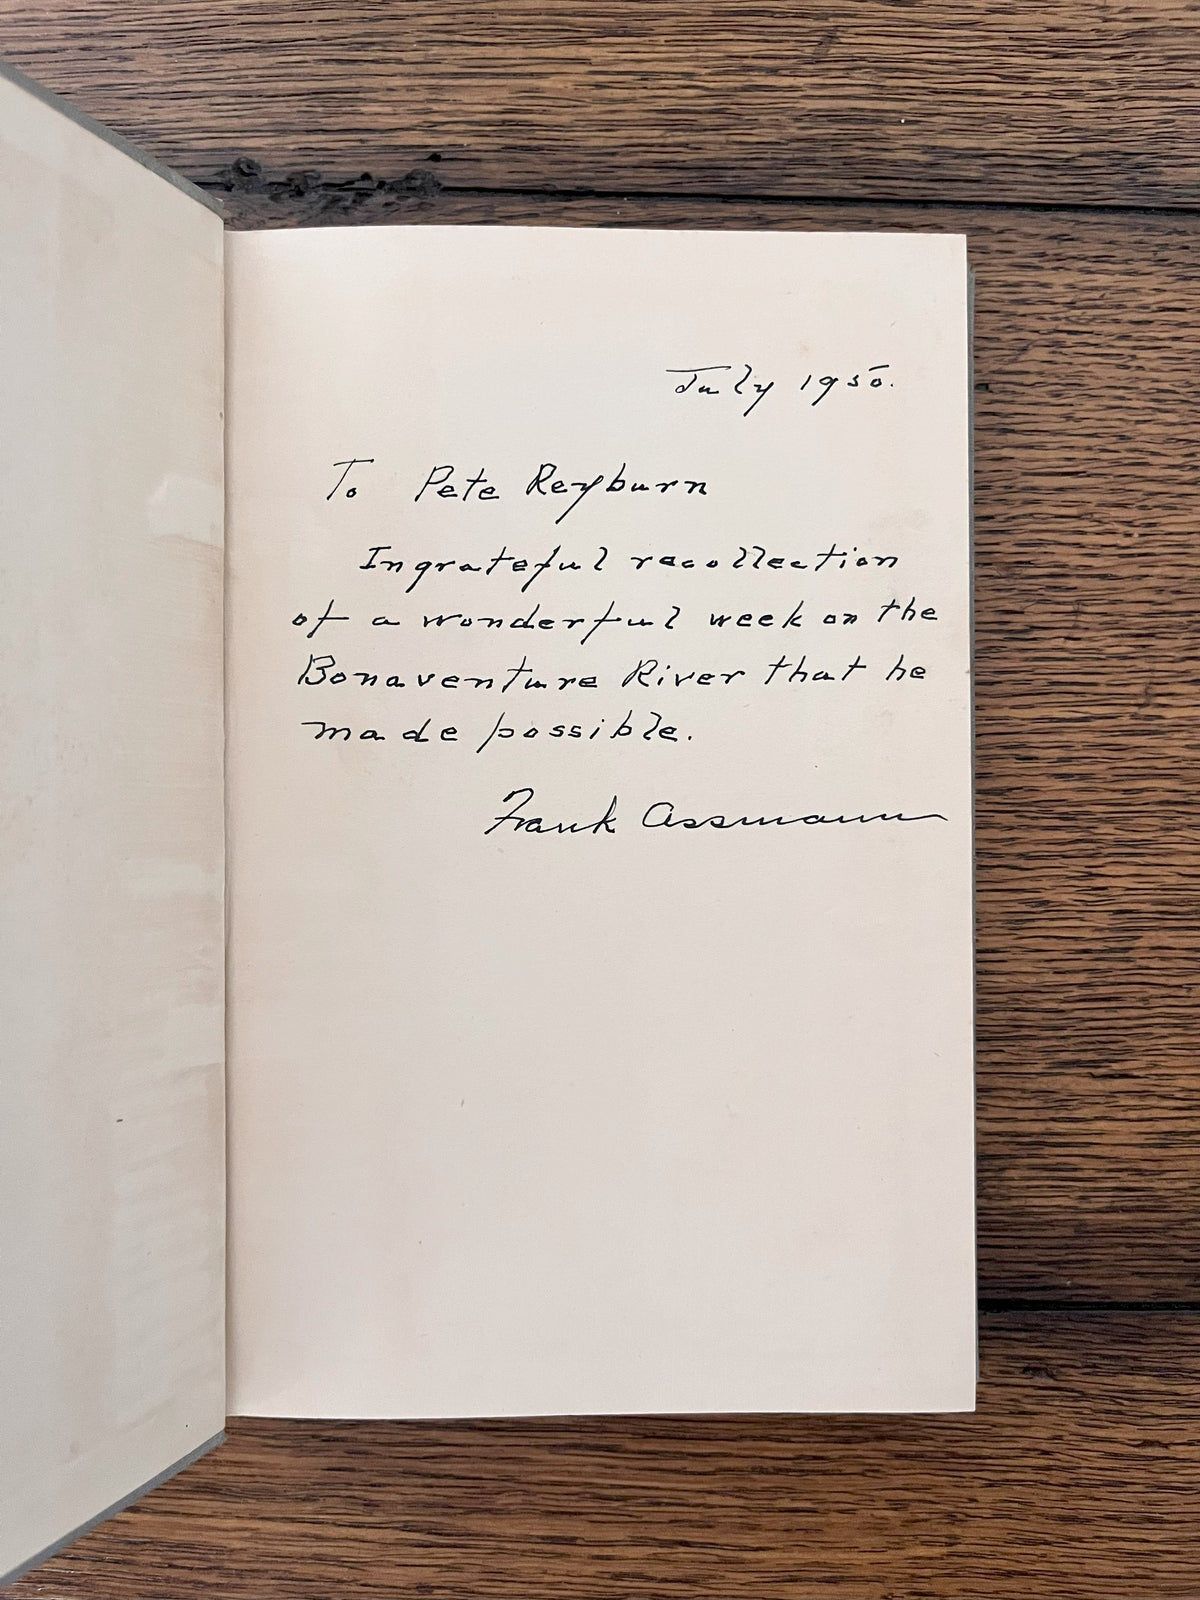 July 1950.
To Pete Reyburn
In grateful recollection
of a wonderful week on the
Bonaventure River that he
made possible.
Frank Assmann